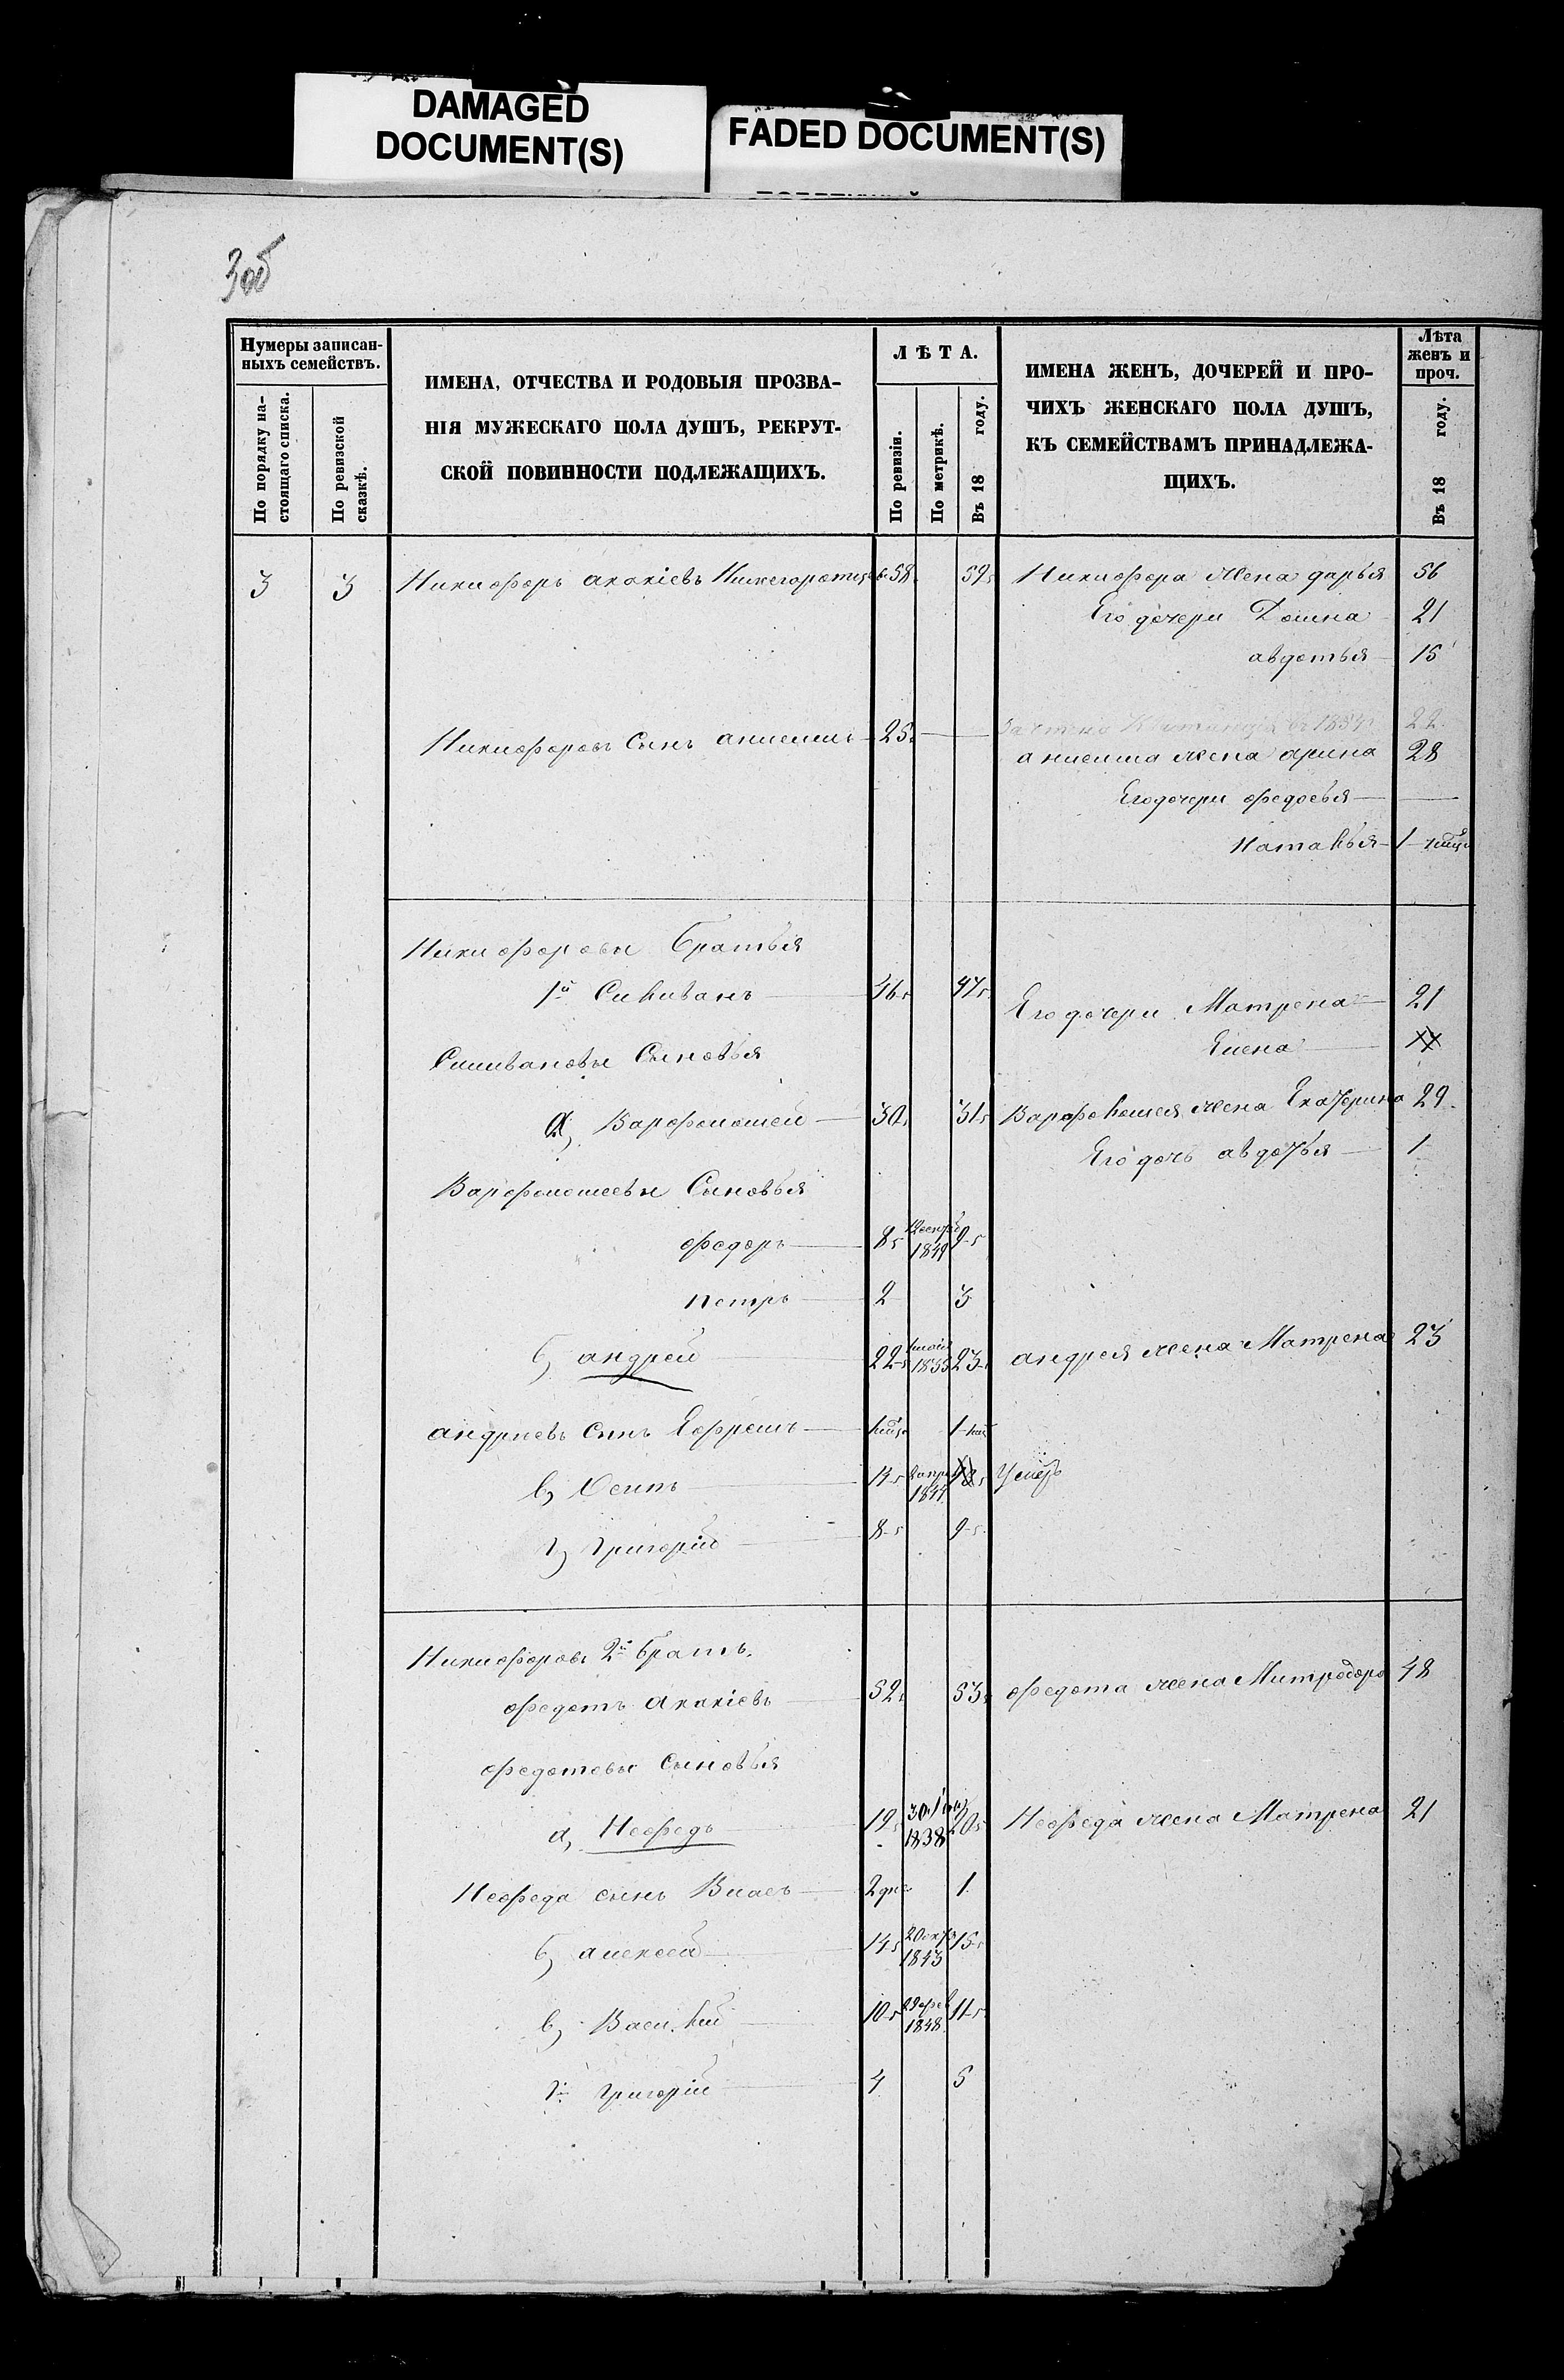 DAMAGED
DOCUMENT(S)
FADED DOCUMENT(S)
3об
Нумеры записан-
ныхъ семействъ.
По порядку на-
стоящаго списка.
По ревизской
сказкѣ.
ИМЕНА, ОТЧЕСТВА И РОДОВЫЯ ПРОЗВА-
НІЯ МУЖЕСКАГО ПОЛА ДУШЪ, РЕКРУТ-
СКОЙ ПОВИННОСТИ ПОДЛЕЖАЩИХЪ.
ЛѢТА.
По ревизіи.
По метрикѣ.
Въ 18 году.
ИМЕНА ЖЕНЪ, ДОЧЕРЕЙ И ПРО-
ЧИХЪ ЖЕНСКАГО ПОЛА ДУШЪ,
КЪ СЕМЕЙСТВАМЪ ПРИНАДЛЕЖА-
ЩИХЪ.
Лѣта
женъ и
проч.
Въ 18 году.
3 3 Никифоръ акакіевъ 58 59 Никифора жена дарья 56
Его дочери Домна 21
авдотья 15
Никифоровъ Сынъ анисимъ 25 22
анисима жена арина 28
Его дочери федосья
Наталья 1
Никифоровы братья
1й Силиванъ 46 47 Его дочери Матрена 21
Елена
Силивановы Сыновья
а, Варфоломей 30 31 Варфоломея жена Екатерина 29
Его дочь авдотья 1
Варфоломеевы Сыновья
федоръ 8 1849 9
петръ 2 3
б, андрей 22 1835 23 андрея жена Матрена 23
андреевъ сынъ Ефремъ 1
в, Осипъ умеръ
г, григорій 8 9
Никифоровъ 2й братъ.
федотъ акакіевъ 52 53 федота жена Митродора 48
федотовы сыновья
а, Нефедъ 19 1838 20 Нефеда жена Матрена 21
Нефеда сынъ Власъ 1
б, алексей 14 20 окт 1843 15
в, Василій 10 фев 1848 11
г григорій 4 5